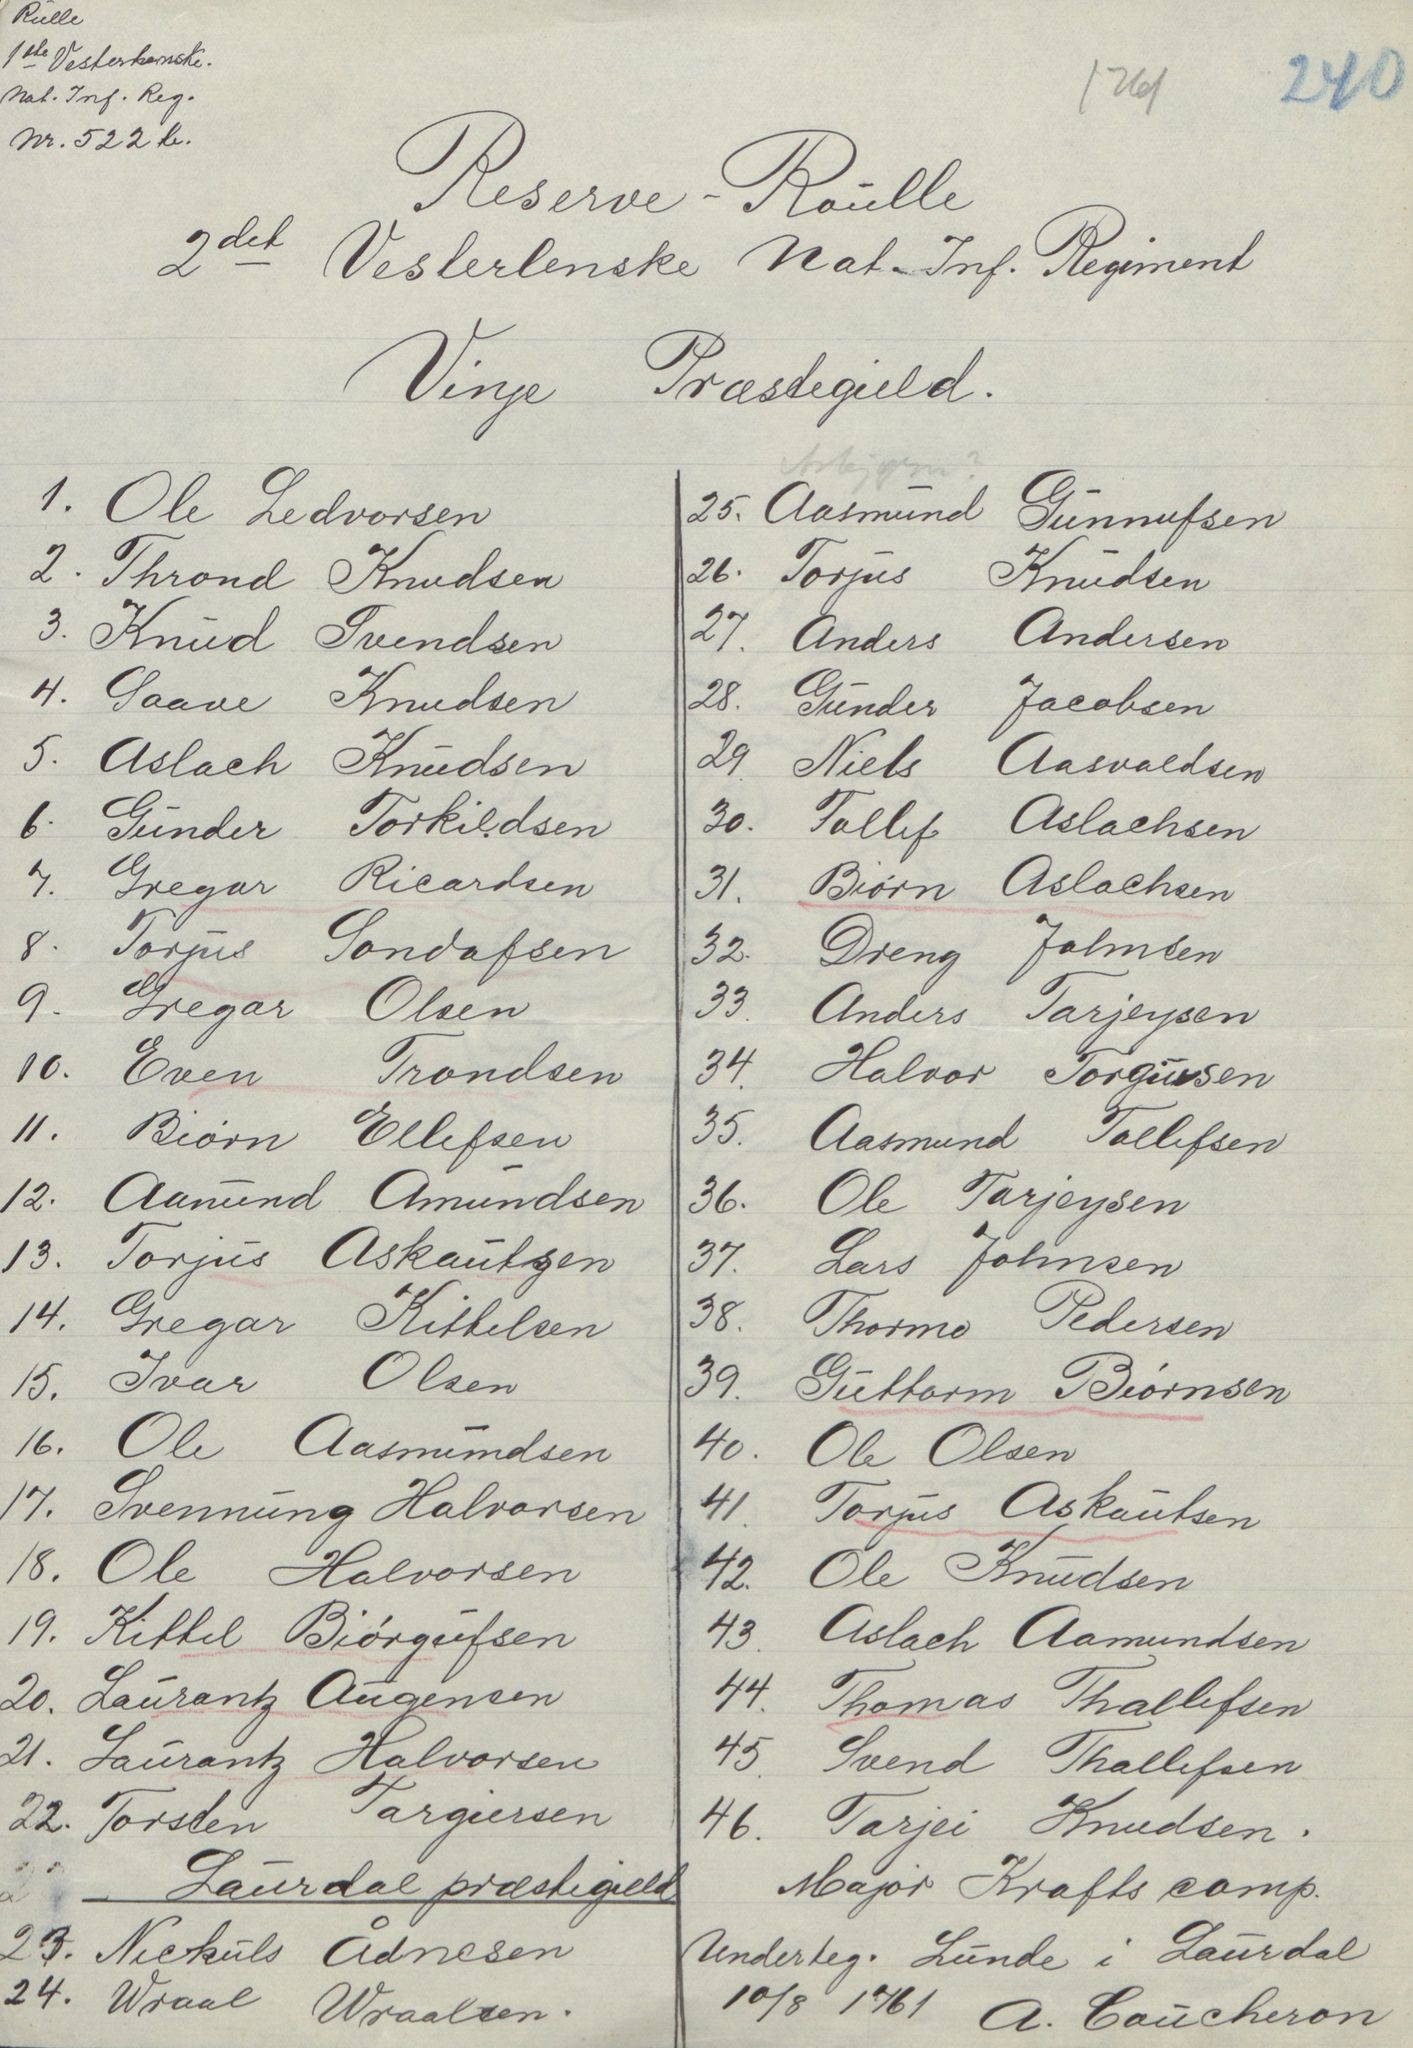 Rülle
1ste Vesterlenske.
Nat. Inf. Reg.
Nr. 522 b.
1761
240
Reserve-Roülle
2det Vesterlenske Nat. Inf. Regiment
Vinje Præstegield.
1. Ole Ledvorsen
2. Thrond Knudsen
3. Knüd Svendsen
4. Saave Knudsen
5. Aslach Knüdsen
6. Günder Torkildsen
7. Gregar Ricardsen
8. Torjüs Sondafsen
9. Gregar Olsen
10. Even Trondsen
11. Biørn Ellefsen
12. Aamünd Amündsen
13. Torjüs Askaütsen
14. Gregar Kittelsen
15. Ivar Olsen
16. Ole Aasmündsen
17. Svennüng Halvorsen
18. Ole Halvorsen
19. Kittel Biørgüfsen
20. Laürantz Aügensen
21. Laürantz Halvorsen
22. Torsten Targiersen
Laürdal præstegield
23. Nicküls Ådnesen
24. Wraal Wraalsen.
25. Aasmünd Günnufsen
26. Torjüs Knüdsen
27. Anders Andersen
28. Günder Jacobsen
29 Niels Aasvaldsen
30. Tollef Aslachsen
31. Biørn Aslachsen
32. Dreng Johnsen
33. Anders Tarjeysen
34. Halvor Torgüvsen
35. Aasmund Tollefsen
36. Ole Tarjeysen
37. Lars Johnsen
38. Thormo Pedersen
39. Güttorm Biørnsen
40. Ole Olsen
41. Torjüs Askaütsen
42. Ole Knüdsen
43. Aslach Aamundsen
44. Thomas Thallefsen
45 Svend Thallefsen
46. Tarjei Knudsen.
Major Krafts comp.
Underteg. Lünde i Laürdal
10/8 1761 A. Coücheron